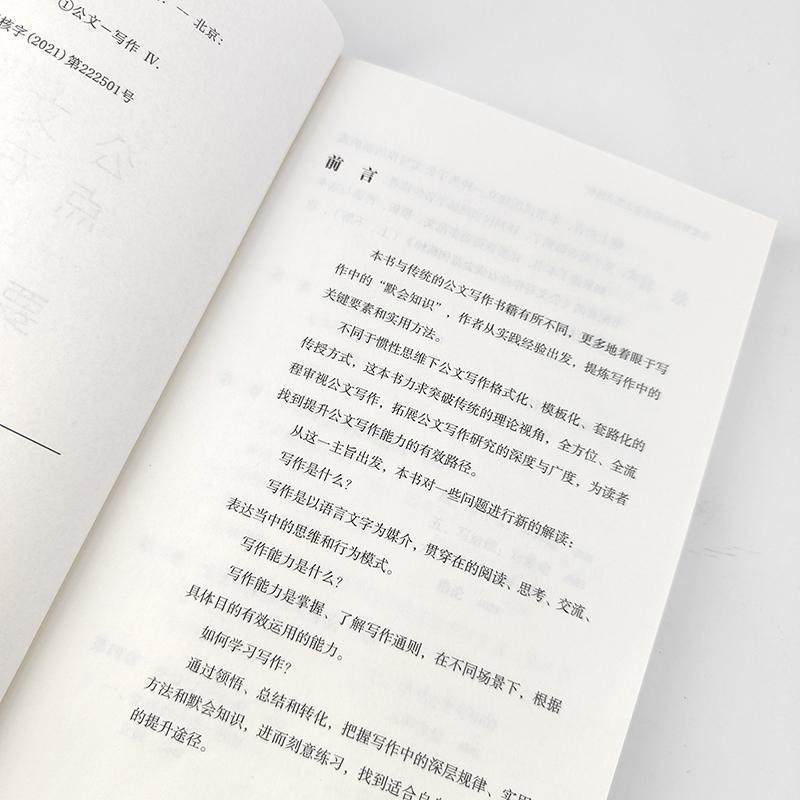 — 北京:
①公文－写作 Ⅳ.
核字(2021)第222501号
前 言
本书与传统的公文写作书籍有所不同，更多地着眼于写
作中的“默会知识”，作者从实践经验出发，提炼写作中的
关键要素和实用方法。
不同于惯性思维下公文写作格式化、模板化、套路化的
传授方式，这本书力求突破传统的理论视角，全方位、全流
程审视公文写作，拓展公文写作研究的深度与广度，为读者
找到提升公文写作能力的有效路径。
从这一主旨出发，本书对一些问题进行新的解读：
写作是什么？
写作是以语言文字为媒介，贯穿在的阅读、思考、交流、
表达当中的思维和行为模式。
写作能力是什么？
写作能力是掌握、了解写作通则，在不同场景下，根据
具体目的有效运用的能力。
如何学习写作？
通过领悟、总结和转化，把握写作中的深层规律、实用
方法和默会知识，进而刻意练习，找到适合自
的提升途径。